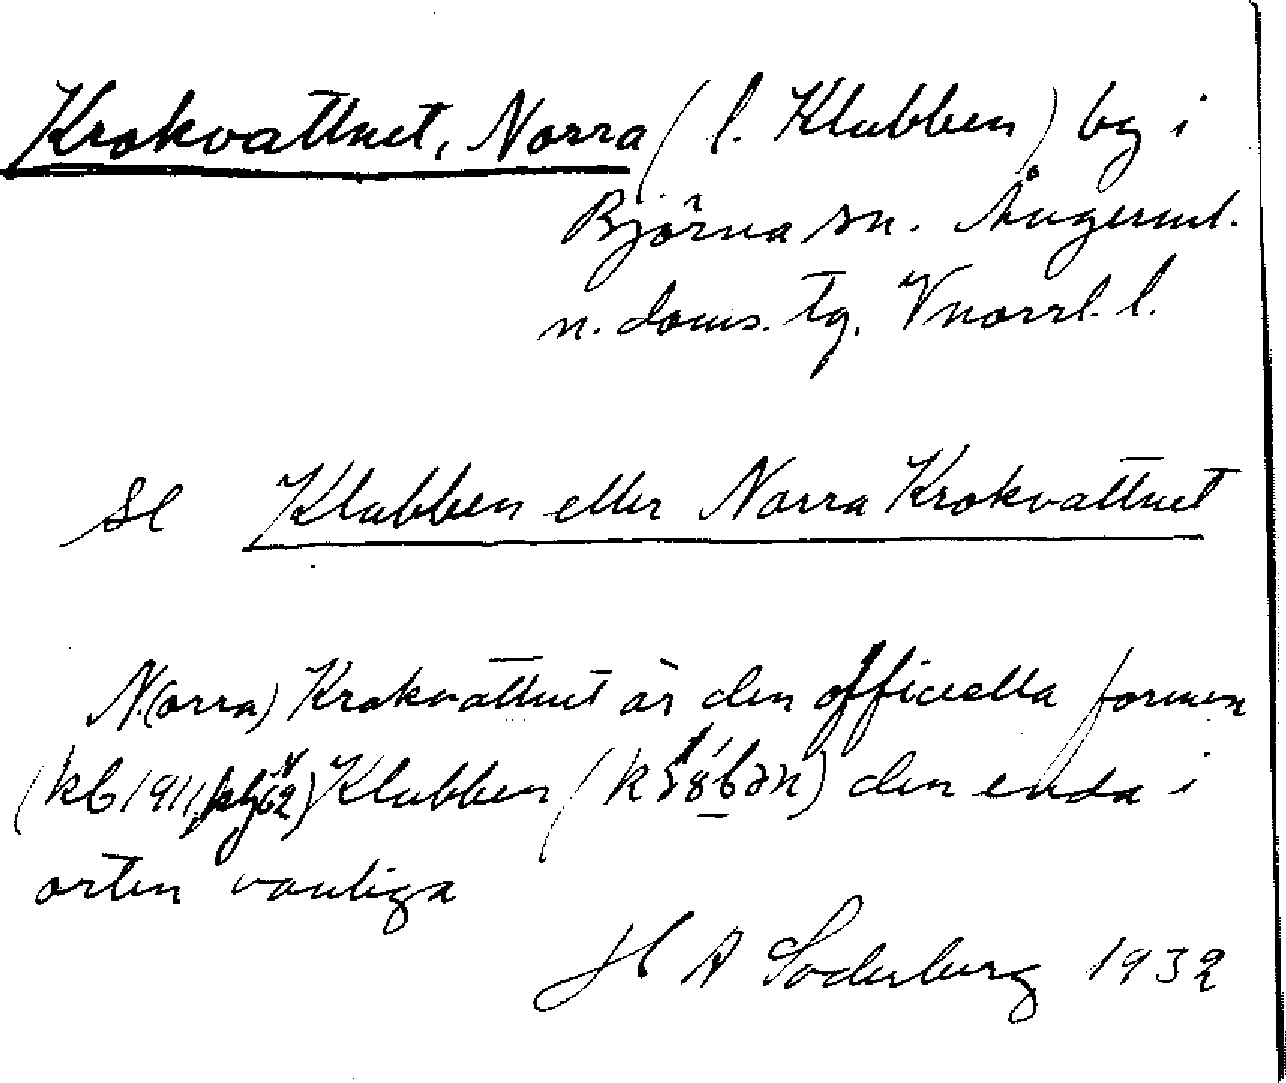 Krokvattnet, Norra (l. Klubben) by i
Björna sn. Ångerml.
n. doms. tg. Vnorrl. l.
se Klubben eller Norra Krokvattnet
N.(orra) Krokvattnet är den officiella formen
(kb 1911, Klubben ( den enda i
orten vanliga
H A Söderberg 1932